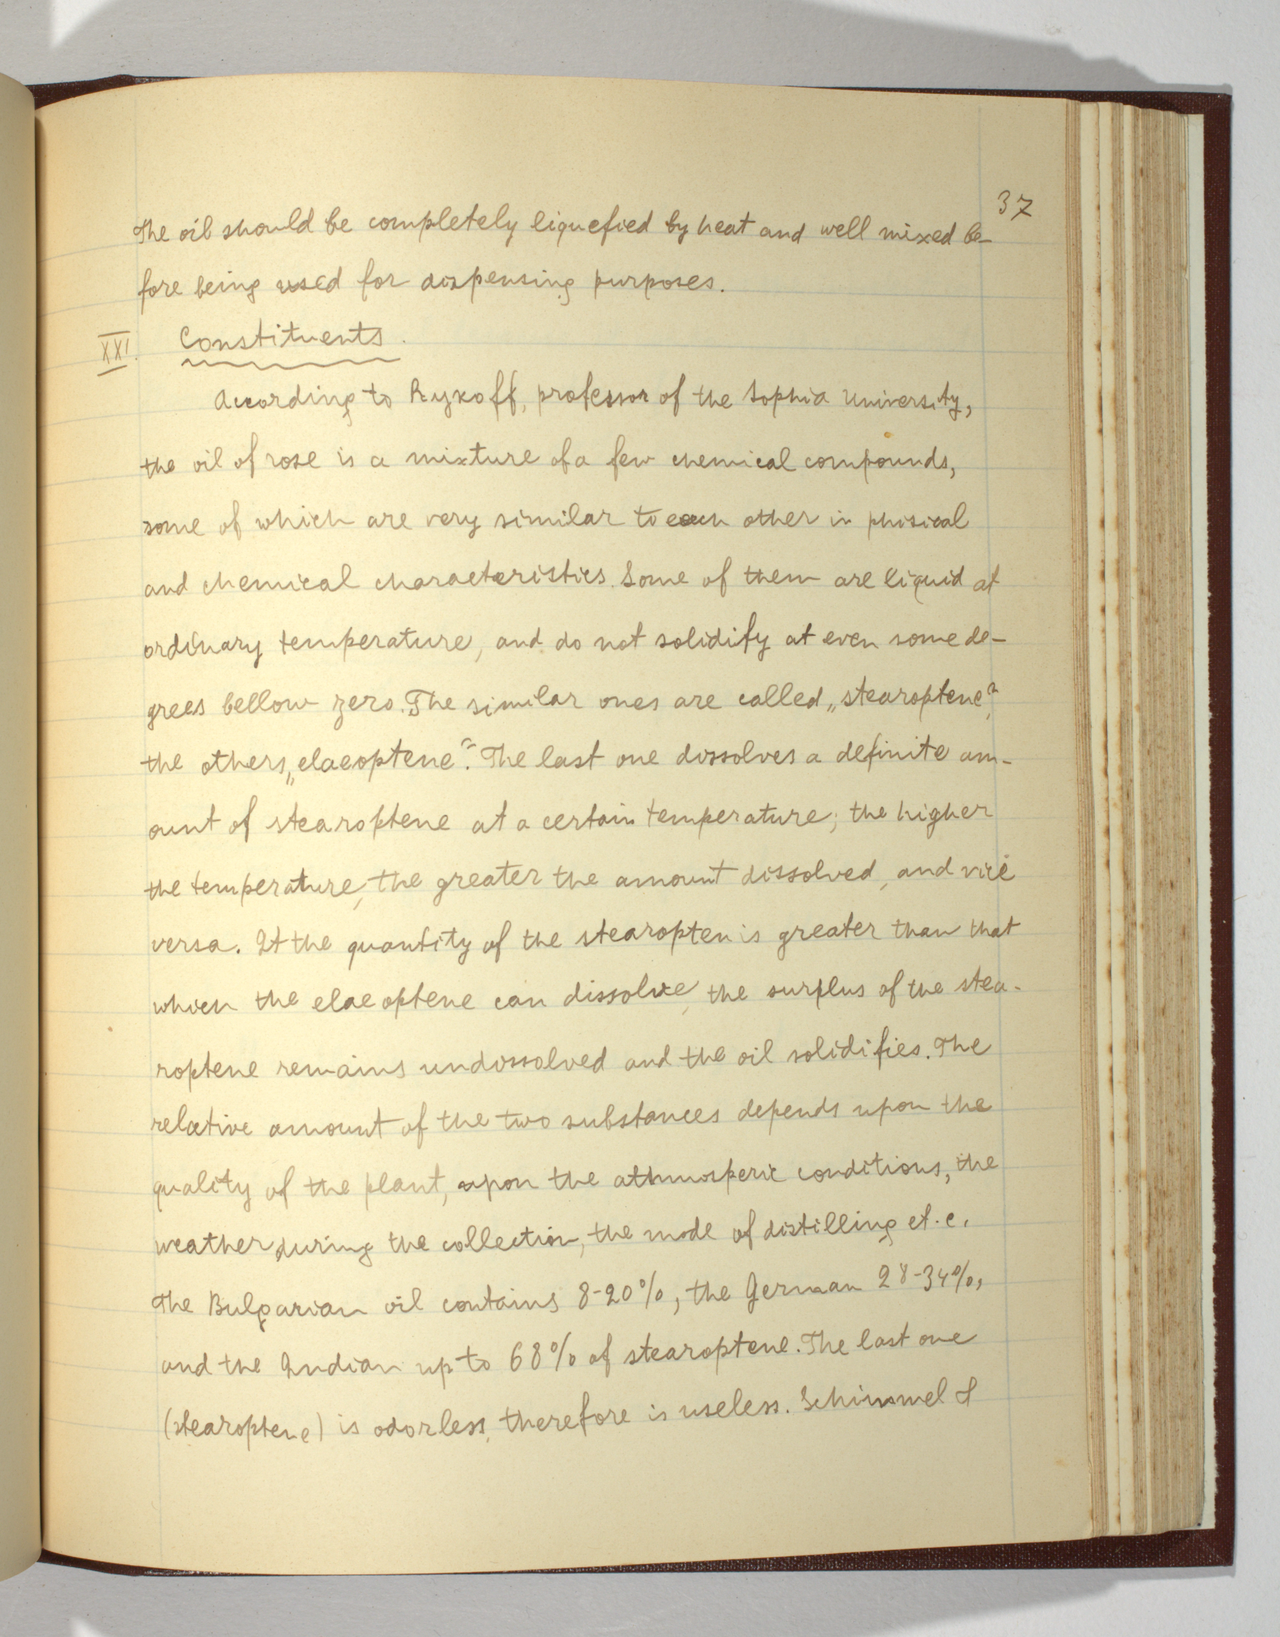 37
The oil should be completely liquefied by heat and well mixed be-
fore being used for dispensing purposes.
XXI. Constituents.
According to Rykoff, professor of the Sophia University,
the oil of rose is a mixture of a few chemical compounds,
some of which are very similar to each other in phisical
and chemical characteristics. Some of them are liquid at
ordinary temperature, and do not solidify at even some de-
grees bellow zero. The similar ones are called „stearoptene",
the others „elaeoptene". The last one dissolves a definite am-
ount of stearoptene at a certain temperature; the higher
the temperature, the greater the amount dissolved, and vice
versa. If the quantity of the stearopten is greater than that
which the elaeoptene can dissolve, the surplus of the stea-
roptene remains undissolved and the oil solidifies. The
relative amount of the two substances depends upon the
quality of the plant, upon the athmosperic conditions, the
weather during the collection, the mode of distilling et.c.
The Bulgarian oil contains 8-20%, the German 28-34%,
and the Indian up to 68% of stearoptene. The last one
(stearoptene) is odorless, therefore is useless. Schimmel &